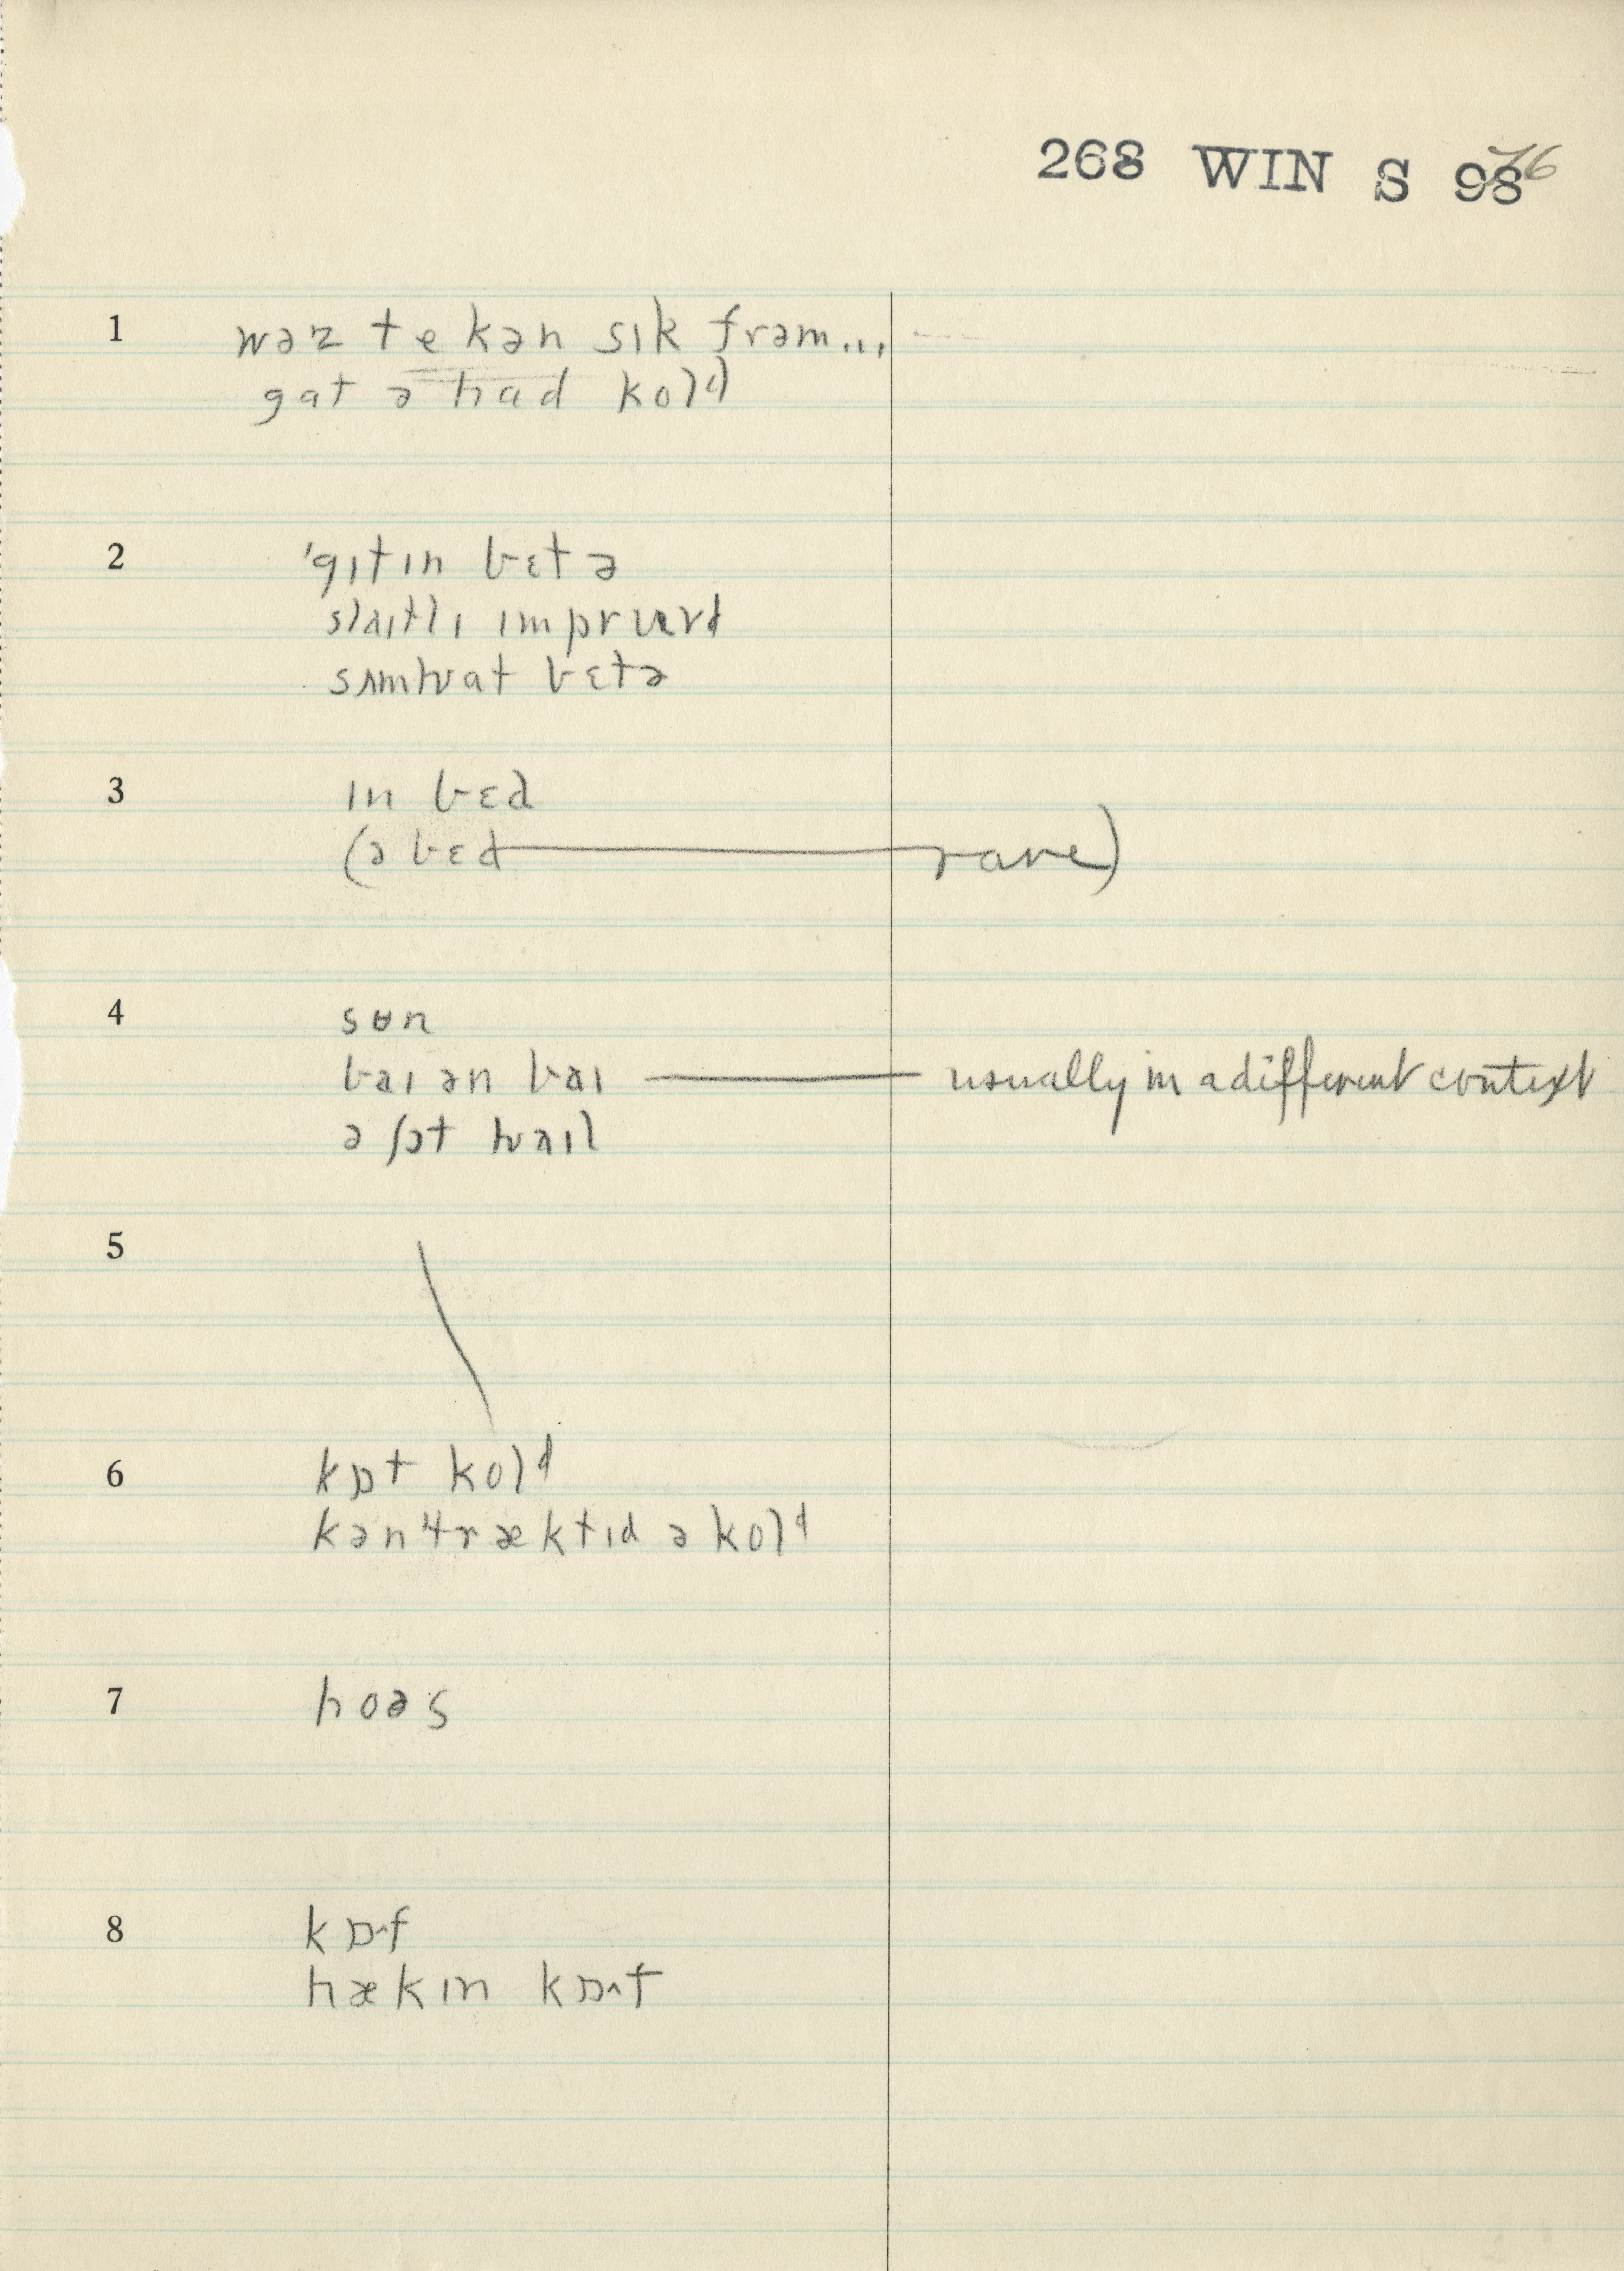 268 WIN S 98 76
1 wəz tekən sɪk frəm...
gat ə had kold
2 'gɪtɪn bɛtə
slaɪtlɪ ɪmpruvd
sʌmhwat bɛtə
3 ɪn bɛd
(ə bɛd — rare)
4 sʉn
baɪ ən baɪ — usually in a different context
ə ʃɔt hwaɪl
5
6 kɒt kold
kəntræktɪd ə kold
7 hoəs
8 kɒˑf
hækɪn kɒˑf